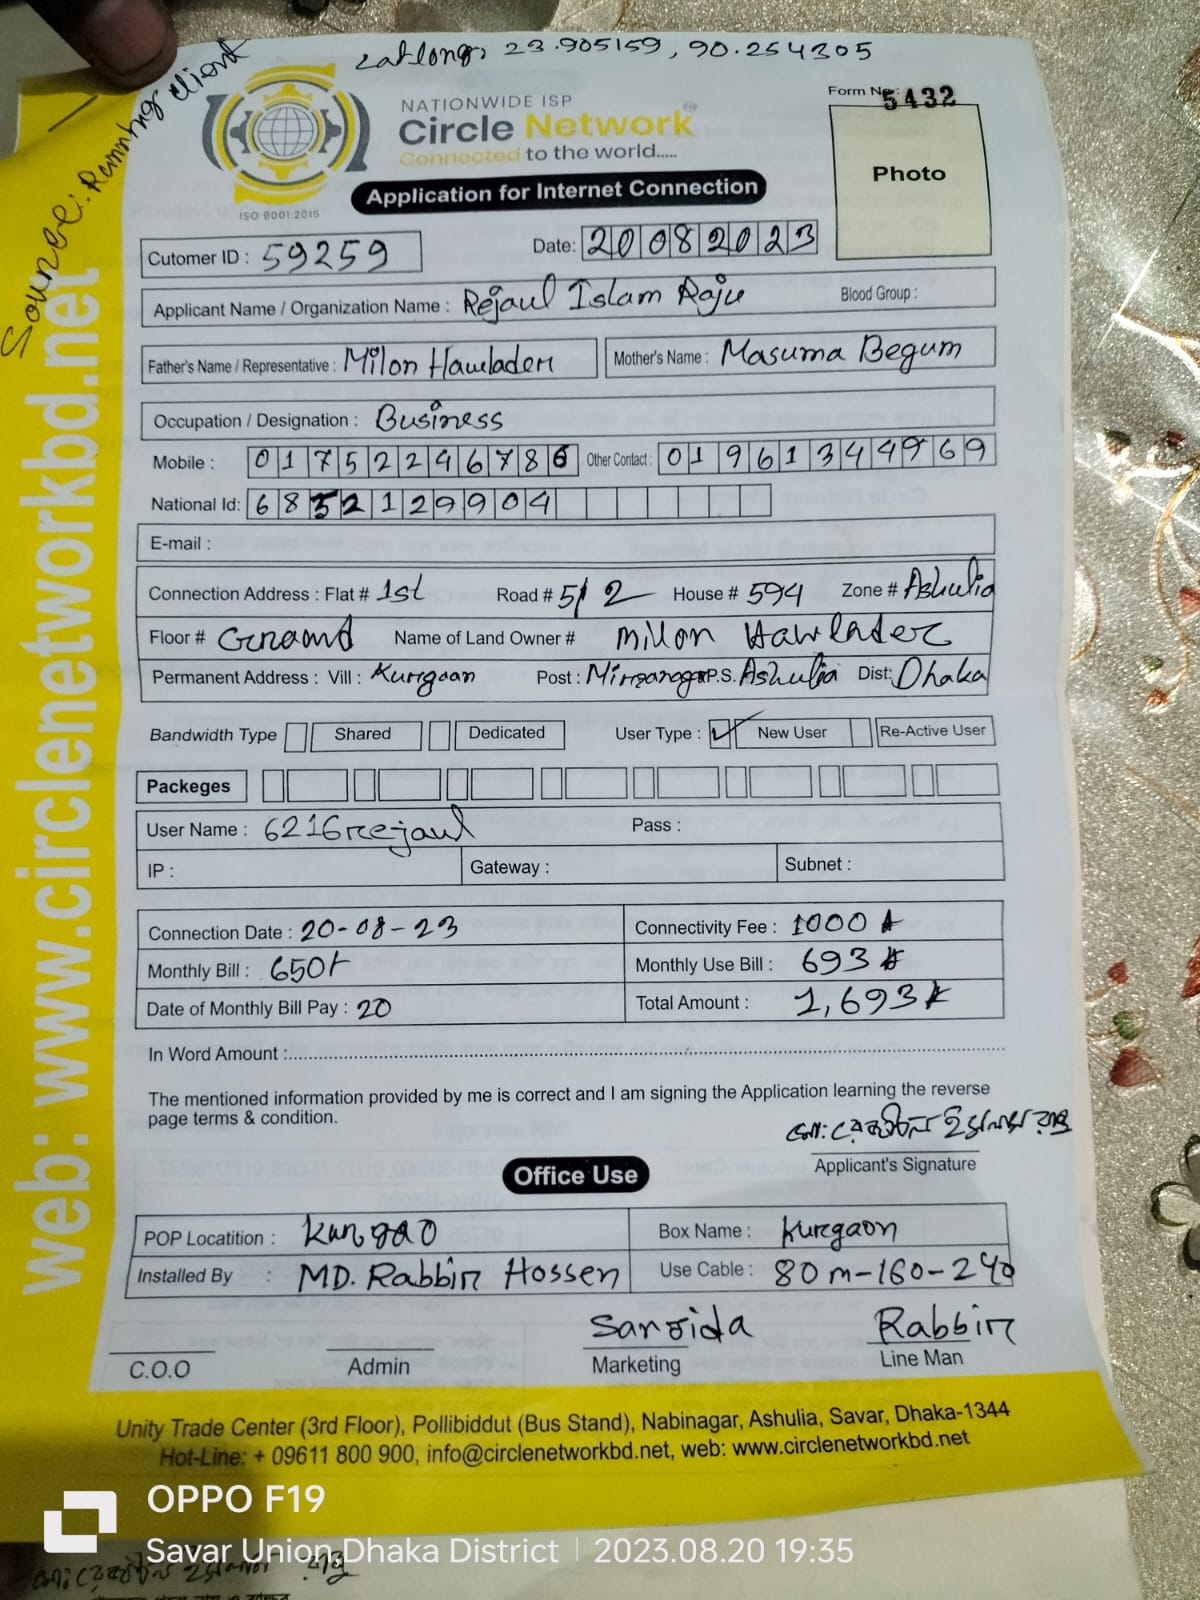 Latlong, 23.905159, 90.254305
Source: Running Client
NATIONWIDE ISP
Circle Network
Connected to the world.....
ISO 9001:2015
Form No: 5432
Photo
Application for Internet Connection
Cutomer ID : 59259 Date: 20082023
Applicant Name / Organization Name : Rejaul Islam Raju Blood Group :
Father's Name / Representative : Milon Hawlader Mother's Name : Masuma Begum
Occupation / Designation : Business
Mobile : 01752246786 Other Contact : 01961344969
National Id: 6852129904
E-mail :
Connection Address : Flat # 1st Road # 5/2 House # 594 Zone # Ashulia
Floor # Ground Name of Land Owner # Millon Hawlader
Permanent Address : Vill : Kurgaon Post : Mirzanagar P.S. Ashulia Dist: Dhaka
Bandwidth Type Shared Dedicated User Type : ✓ New User Re-Active User
Packeges
User Name : 6216rejaul Pass :
IP : Gateway : Subnet :
Connection Date : 20-08-23 Connectivity Fee : 1000
Monthly Bill : 650 Monthly Use Bill : 693
Date of Monthly Bill Pay : 20 Total Amount : 1,693
In Word Amount :
The mentioned information provided by me is correct and I am signing the Application learning the reverse
page terms & condition.
মো: রেজাউল ইসলাম রাজু
Applicant's Signature
Office Use
POP Locatition : Kurgao Box Name : Kurgaon
Installed By : MD. Rabbir Hossen Use Cable : 80m-160-240
Sanzida Rabbir
C.O.O Admin Marketing Line Man
Unity Trade Center (3rd Floor), Pollibiddut (Bus Stand), Nabinagar, Ashulia, Savar, Dhaka-1344
Hot-Line: + 09611 800 900, info@circlenetworkbd.net, web: www.circlenetworkbd.net
web: www.circlenetworkbd.net
OPPO F19
Savar Union,Dhaka District | 2023.08.20 19:35
মো: রেজাউল ইসলাম রাজু